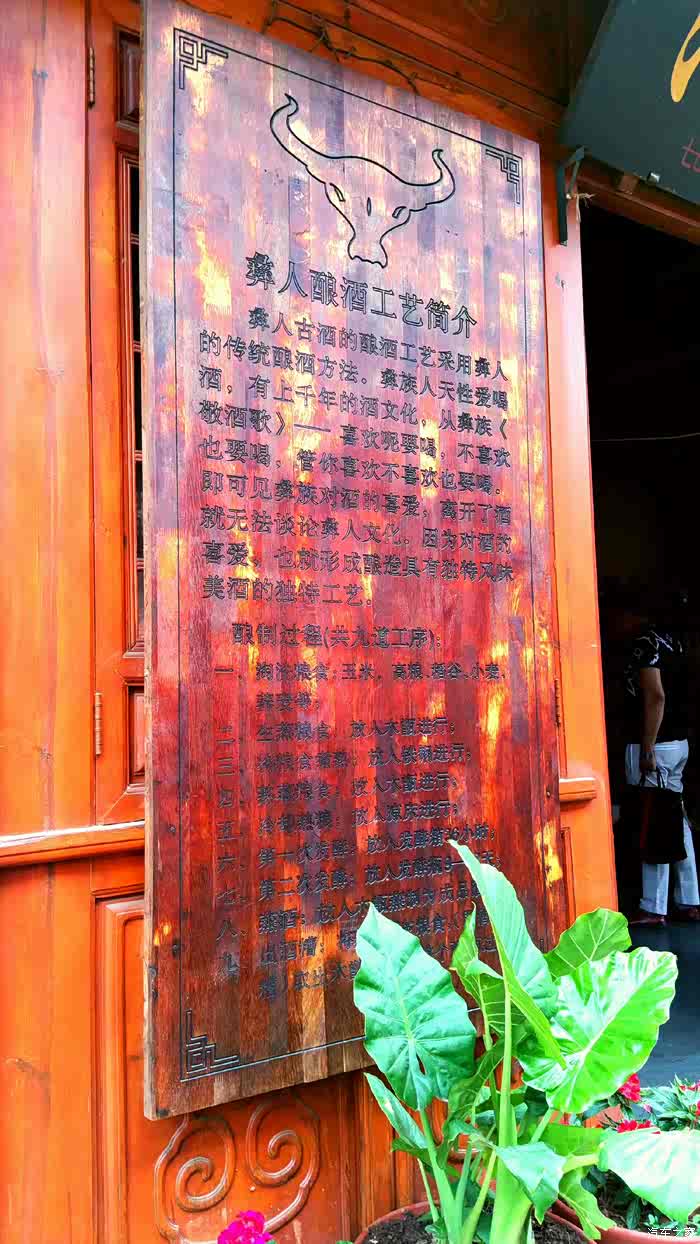 彝人酿酒工艺简介
彝人古酒的酿酒工艺采用彝人
的传统酿酒方法。彝族人天性爱喝
酒，有上千年的酒文化，从彝族《
敬酒歌》——喜欢呢要喝，不喜欢
也要喝，管你喜欢不喜欢也要喝。
即可见彝族对酒的喜爱，离开了酒
就无法谈论彝人文化。因为对酒的
喜爱，也就形成酿造具有独特风味
美酒的独特工艺。
酿制过程(共九道工序)：
一、淘洗粮食：玉米，高粮、稻谷、小麦、
荞麦等；
二、生蒸粮食：放入木甑进行；
三、粮食 ：放入铁锅进行；
四、熟蒸粮食：放入木甑进行；
五、冷却熟粮：放入凉床进行；
六、第一次发酵：放入发酵箱 小时；
七、第二次发酵：放入发酵
八、蒸酒：放入木甑 为成品
九、出酒糟：
汽车之家